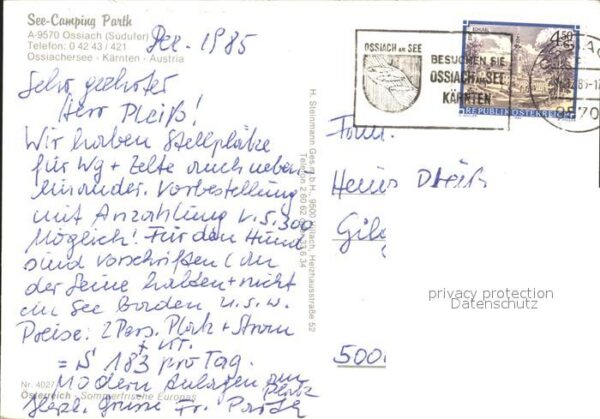 See-Camping Parth
A-9570 Ossiach (Südufer)
Telefon: 0 42 43 / 421
Ossiachersee - Kärnten - Austria
Dez. 1985
Sehr geehrter
Herr Pleiß!
Wir haben Stellplätze
für Wg + Zelte auch neben
einander. Vorbestellung
mit Anzahlung v. S. 300
möglich! Für den Hund
sind Vorschriften (an
der Leine halten + nicht
im See baden u.s.w.
Preise: 2 Pers. Platz + Strom
+ KT.
= S 183 pro Tag.
Modern Anlagen am
Platz
Herzl. Grüsse Fr. Parth
Nr. 4027
Österreich - Sommerfrische Europas
H. Steinmann Ges.m.b.H., 9500 Villach, Heizhausstraße 52
OSSIACH AM SEE
BESUCHEN SIE
OSSIACH AM SEE
KÄRNTEN
4.50
REPUBLIK ÖSTERREICH
9570
Fam.
Heinz Pleiß
500
privacy protection
Datenschutz